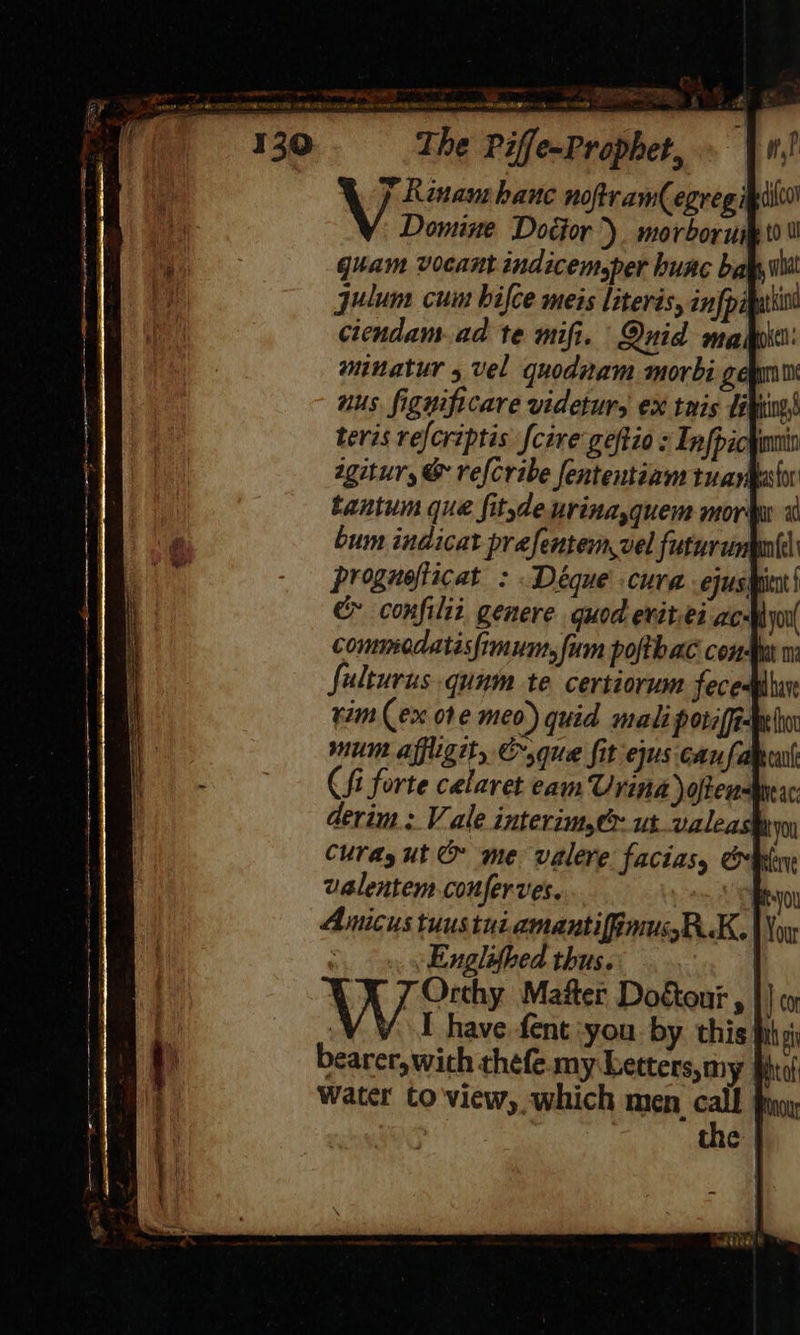 130 The Pisse-Prophet,
VRinam hanc nostram (egregi
Domine Doctor) morborum
quam vocant indicem, per hunc ba
julum cum hisce meis literis, inspi
ciendam ad te misi. Quid ma
minatur, vel quodnam morbi ge
nus significare videtur, ex tuis li
teris rescriptis scire gestio: Inspic
igitur, & rescribe sententiam tuam
tantum quæ sit, de urina, quem mor
bum indicat præsentem, vel futurum
prognosticat: Déque cura ejus
& consilii genere quod erit ei ac-
commodatissimum, sum posthac con-
sulturus quum te certiorum fece-
rim (ex ore meo) quid mali potissi-
mum affligit, & quæ sit ejus causa
(si forte celaret eam Urina) osten-
derim: Vale interim, & ut valeas
cura, ut & me valere facias, &
valentem conserves.
Amicus tuus tui amantissimus, R.K.
Englished thus.
WOrthy Master Doctour,
I have sent you by this
bearer, with these my Letters, my
Water to view, which men call
the